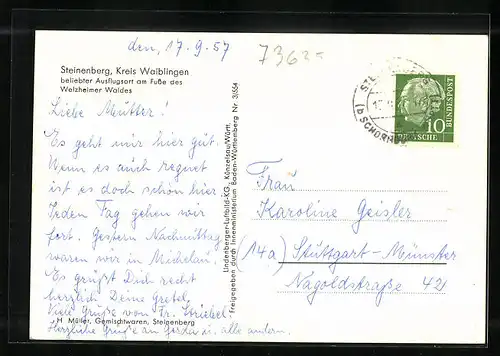 den, 17.9.57
7362=
Steinenberg, Kreis Waiblingen
beliebter Ausflugsort am Fuße des
Welzheimer Waldes
Liebe Mutter!
Es geht mir hier gut.
Wenn es auch regnet
ist es doch schön hier.
Jeden Tag gehen wir
fort. Gestern Nachmittag
waren wir in Michelau.
Es grüßt Dich recht
herzlich Deine Gretel,
Viele Grüße von Fr. Striebel
Herzliche Grüße an u. alle andern.
H. Müller, Gemischtwaren, Steinenberg
Lindenberger-Luftbild-KG., Künzelsau/Württ.
Freigegeben durch Innenministerium Baden-Württemberg Nr. 3/654
(b SCHORND
10
DEUTSCHE
BUNDESPOST
Frau
Karoline Geisler
(14a) Stuttgart-Münster
Nagoldstraße 42